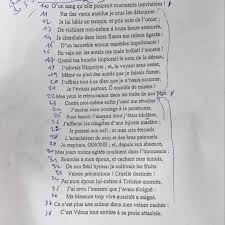 10 D'un sang qu'elle poursuit tourments inévitables !
11 Par des vœux assidus je crus les détourner :
12 Je lui bâtis un temple, et pris soin de l'orner ;
13 De victimes moi-même à toute heure entourée,
14 Je cherchais dans leurs flancs ma raison égarée :
15 D'un incurable amour remèdes impuissants !
16 En vain sur les autels ma main brûlait l'encens !
17 Quand ma bouche implorait le nom de la déesse,
18 J'adorais Hippolyte ; et, le voyant sans cesse,
19 Même au pied des autels que je faisais fumer,
20 J'offrais tout à ce dieu que je n'osais nommer.
21 Je l'évitais partout. Ô comble de misère !
22 Mes yeux le retrouvaient dans les traits de son père.
23 Contre moi-même enfin j'osai me révolter :
24 J'excitai mon courage à le persécuter.
25 Pour bannir l'ennemi dont j'étais idolâtre,
26 J'affectai les chagrins d'une injuste marâtre ;
27 Je pressai son exil ; et mes cris éternels
28 L'arrachèrent du sein et des bras paternels.
29 Je respirais, ŒNONE ; et, depuis son absence,
30 Mes jours moins agités coulaient dans l'innocence :
31 Soumise à mon époux, et cachant mes ennuis,
32 De son fatal hymen je cultivais les fruits.
33 Vaines précautions ! Cruelle destinée !
34 Par mon époux lui-même à Trézène amenée,
35 J'ai revu l'ennemi que j'avais éloigné :
36 Ma blessure trop vive aussitôt a saigné.
37 Ce n'est plus une ardeur dans mes veines cachée :
38 C'est Vénus tout entière à sa proie attachée.